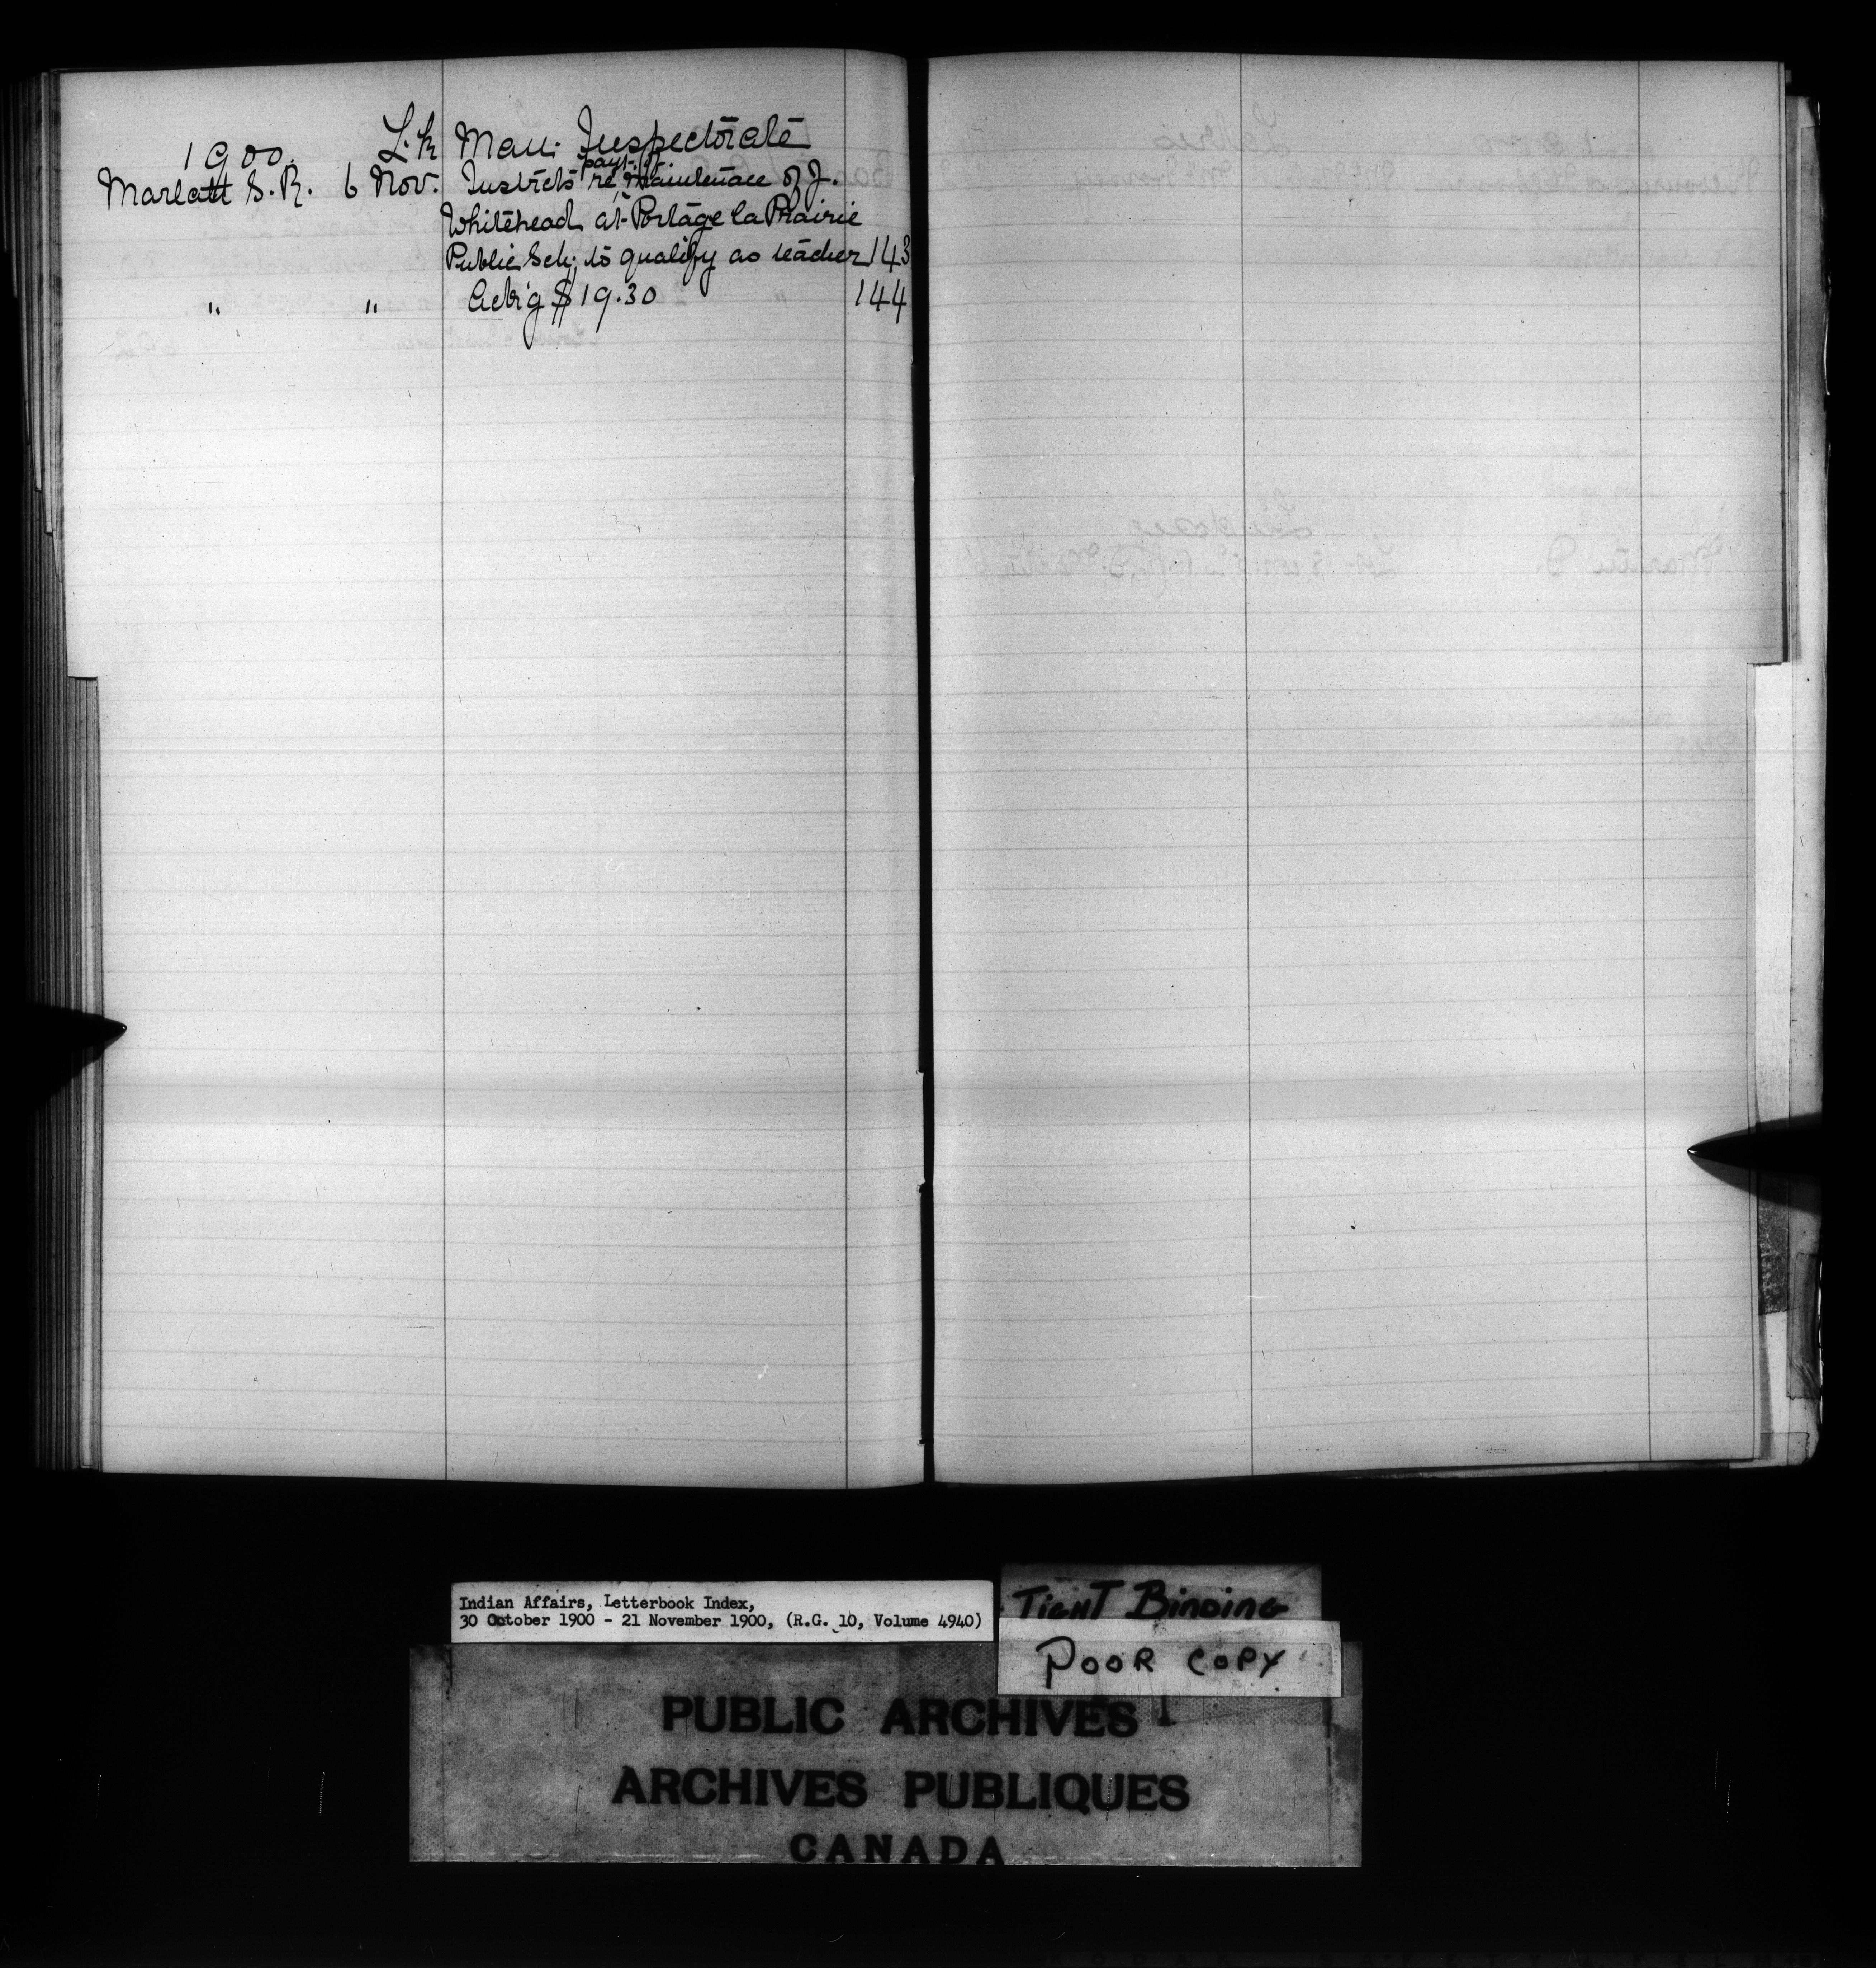 1900. L. K Man: Inspectorate
Marlatt S. R. 6 Nov. Instrcts re payt. for maintenace of J.
Whitehead at Portage la Prairie
Public Sch; to qualify as teacher 143
" " Ack'g $19.30 144
Indian Affairs, Letterbook Index,
30 October 1900 - 21 November 1900, (R.G. 10, Volume 4940)
TIGHT BINDING
POOR COPY
PUBLIC ARCHIVES
ARCHIVES PUBLIQUES
CANADA